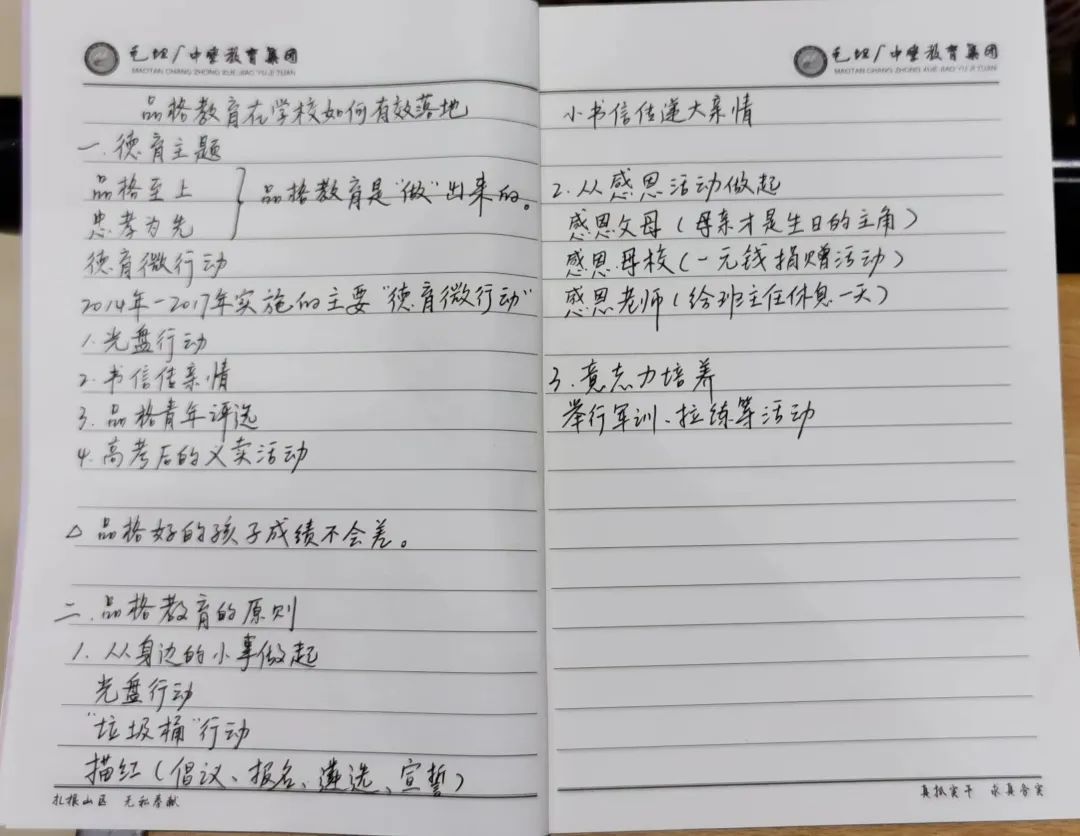 毛坦厂中学教育集团
MAOTAN CHANG ZHONG XUE JIAO YU JI TUAN
品格教育在学校如何有效落地
一.德育主题
品格至上
忠孝为先
品格教育是“做”出来的。
德育微行动
2014年-2017年实施的主要“德育微行动”
1.光盘行动
2.书信传亲情
3.品格青年评选
4.高考后的义卖活动
△品格好的孩子成绩不会差。
二.品格教育的原则
1.从身边的小事做起
光盘行动
“垃圾桶”行动
描红(倡议、报名、遴选、宣誓)
扎根山区 无私奉献
毛坦厂中学教育集团
MAOTAN CHANG ZHONG XUE JIAO YU JI TUAN
小书信传递大亲情
2.从感恩活动做起
感恩父母(母亲才是生日的主角)
感恩母校(一元钱捐赠活动)
感恩老师(给班主任休息一天)
3.意志力培养
举行军训、拉练等活动
真抓实干 求真务实